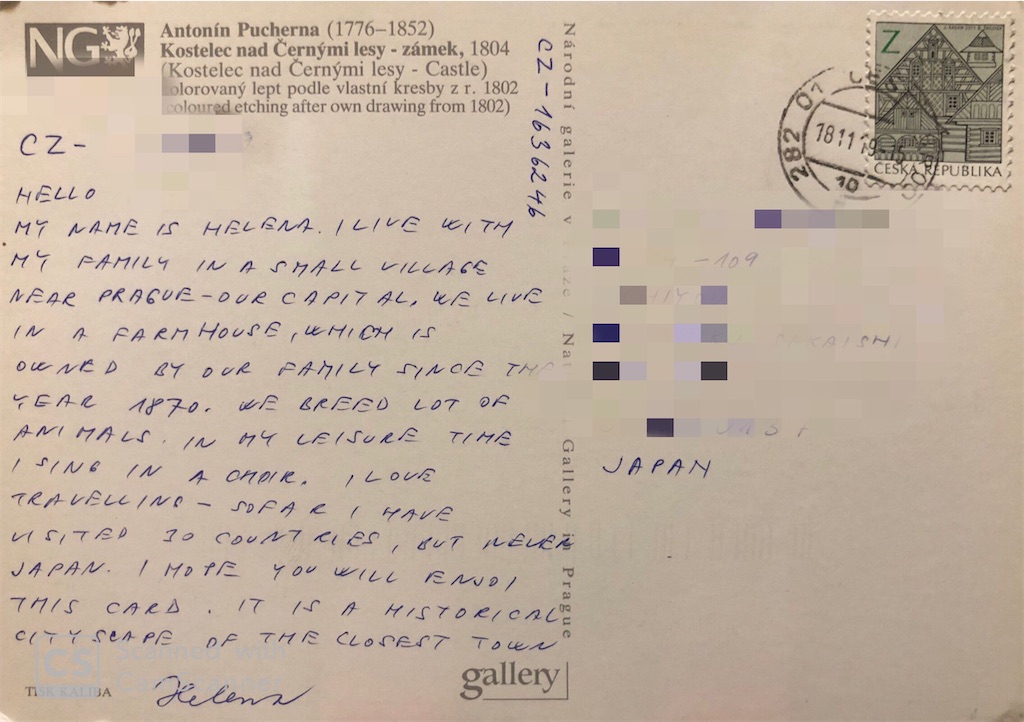 NG
Antonín Pucherna (1776–1852)
Kostelec nad Černými lesy - zámek, 1804
(Kostelec nad Černými lesy - Castle)
olorovaný lept podle vlastní kresby z r. 1802
coloured etching after own drawing from 1802)
CZ-
HELLO
MY NAME IS HELENA. I LIVE WITH
MY FAMILY IN A SMALL VILLAGE
NEAR PRAGUE - OUR CAPITAL. WE LIVE
IN A FARMHOUSE, WHICH IS
OWNED BY OUR FAMILY SINCE THE
YEAR 1870. WE BREED LOT OF
ANIMALS. IN MY LEISURE TIME
I SING IN A CHOIR. I LOVE
TRAVELLING - SOFAR I HAVE
VISITED 30 COUNTRIES, BUT NEVER
JAPAN. I HOPE YOU WILL ENJOI
THIS CARD. IT IS A HISTORICAL
CITYSCAPE OF THE CLOSEST TOWN
Helena
CS Scanned with
CamScanner
TISK KALIBA
CZ-1636246
Národní galerie v
Gallery in Prague
gallery
Z
ČESKÁ REPUBLIKA
282 01
18 11 19-15
10
-109
JAPAN